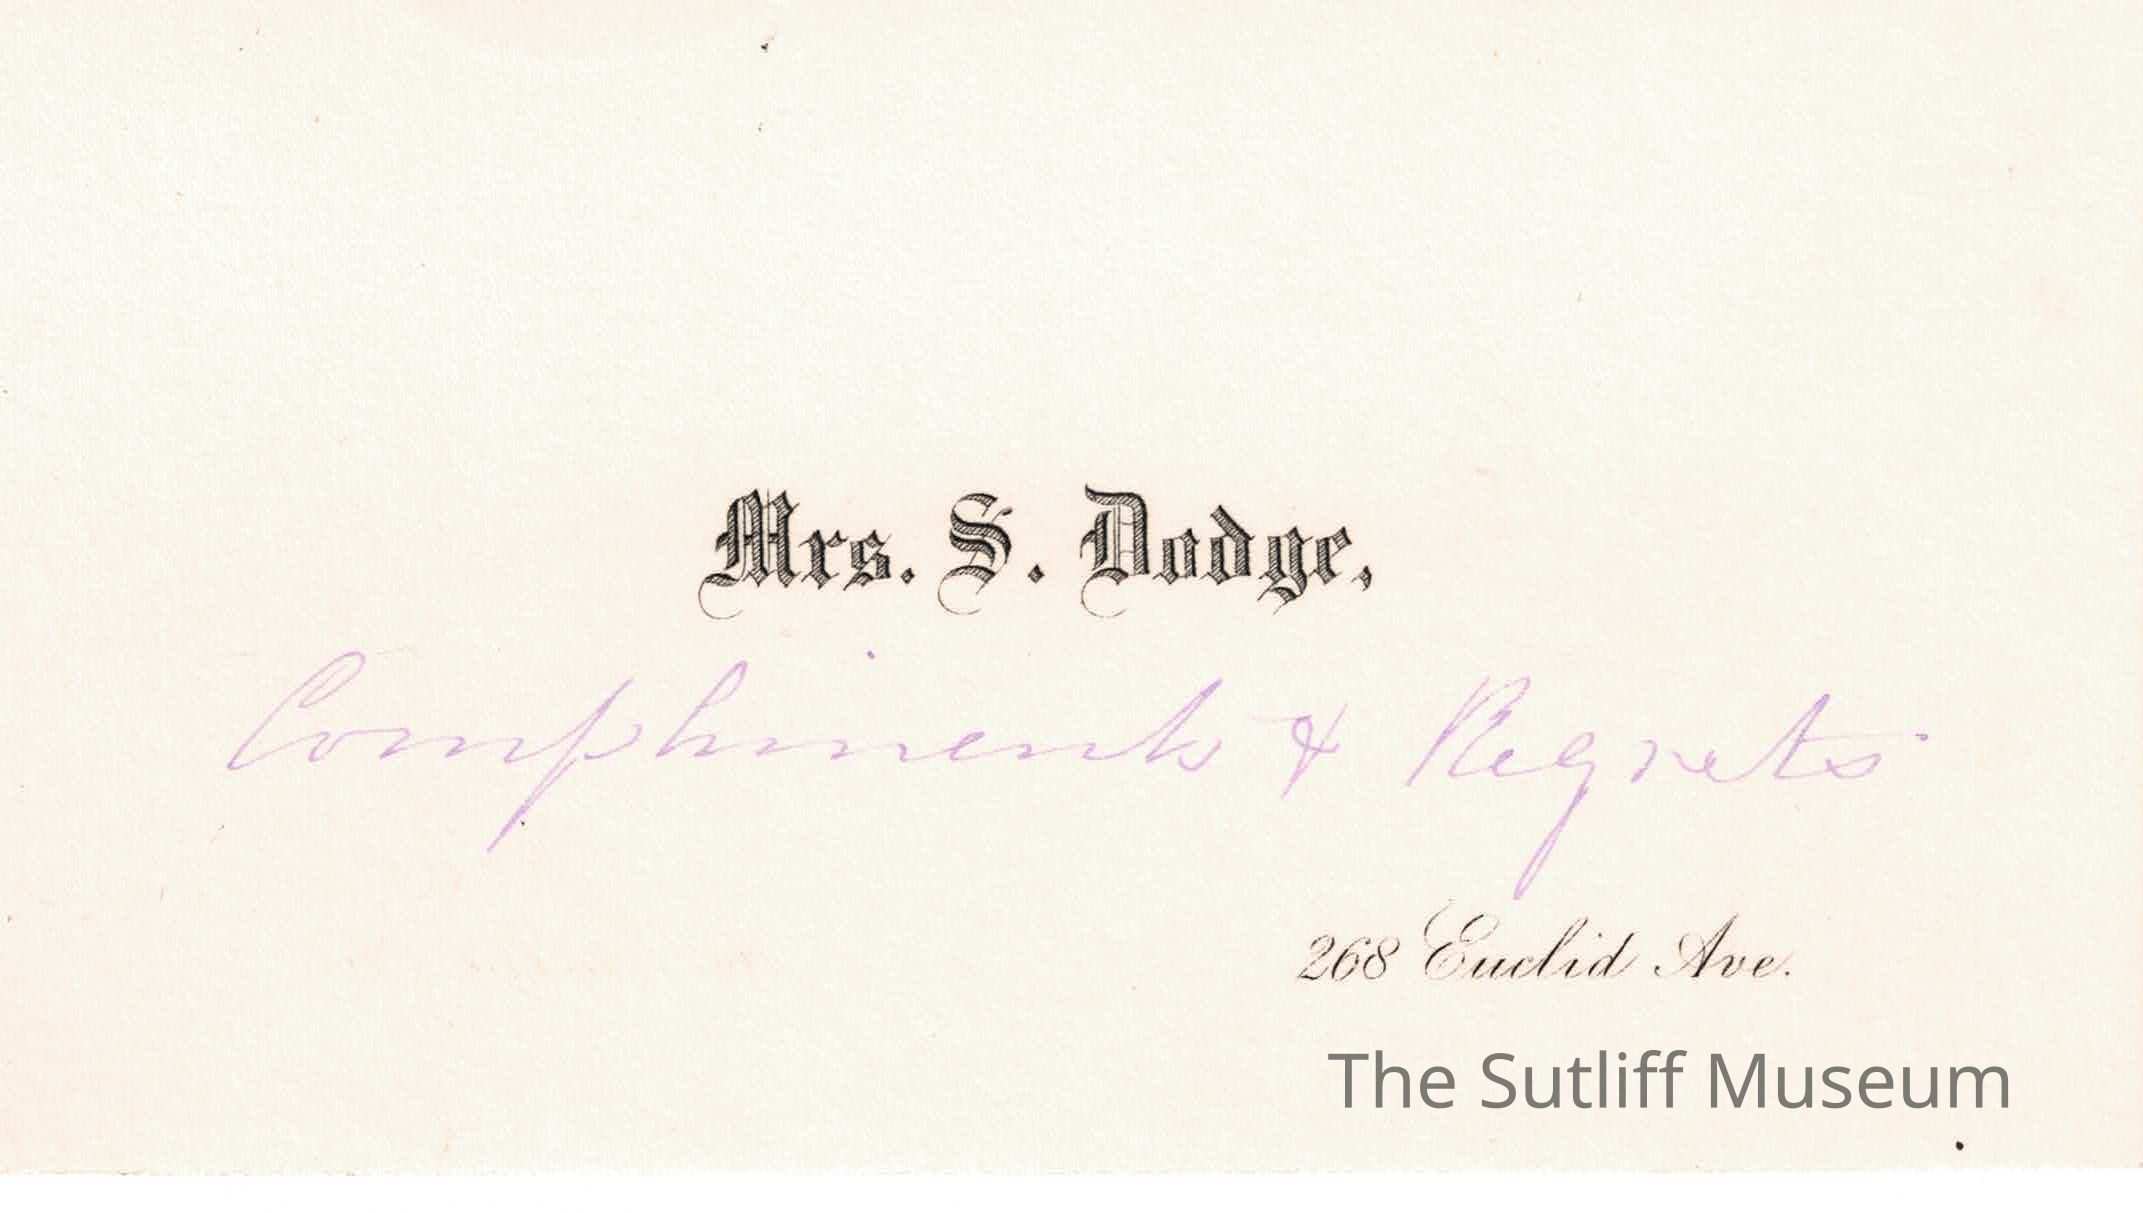 Mrs. S. Dodge,
Compliments & Regrets
268 Euclid Ave.
The Sutliff Museum